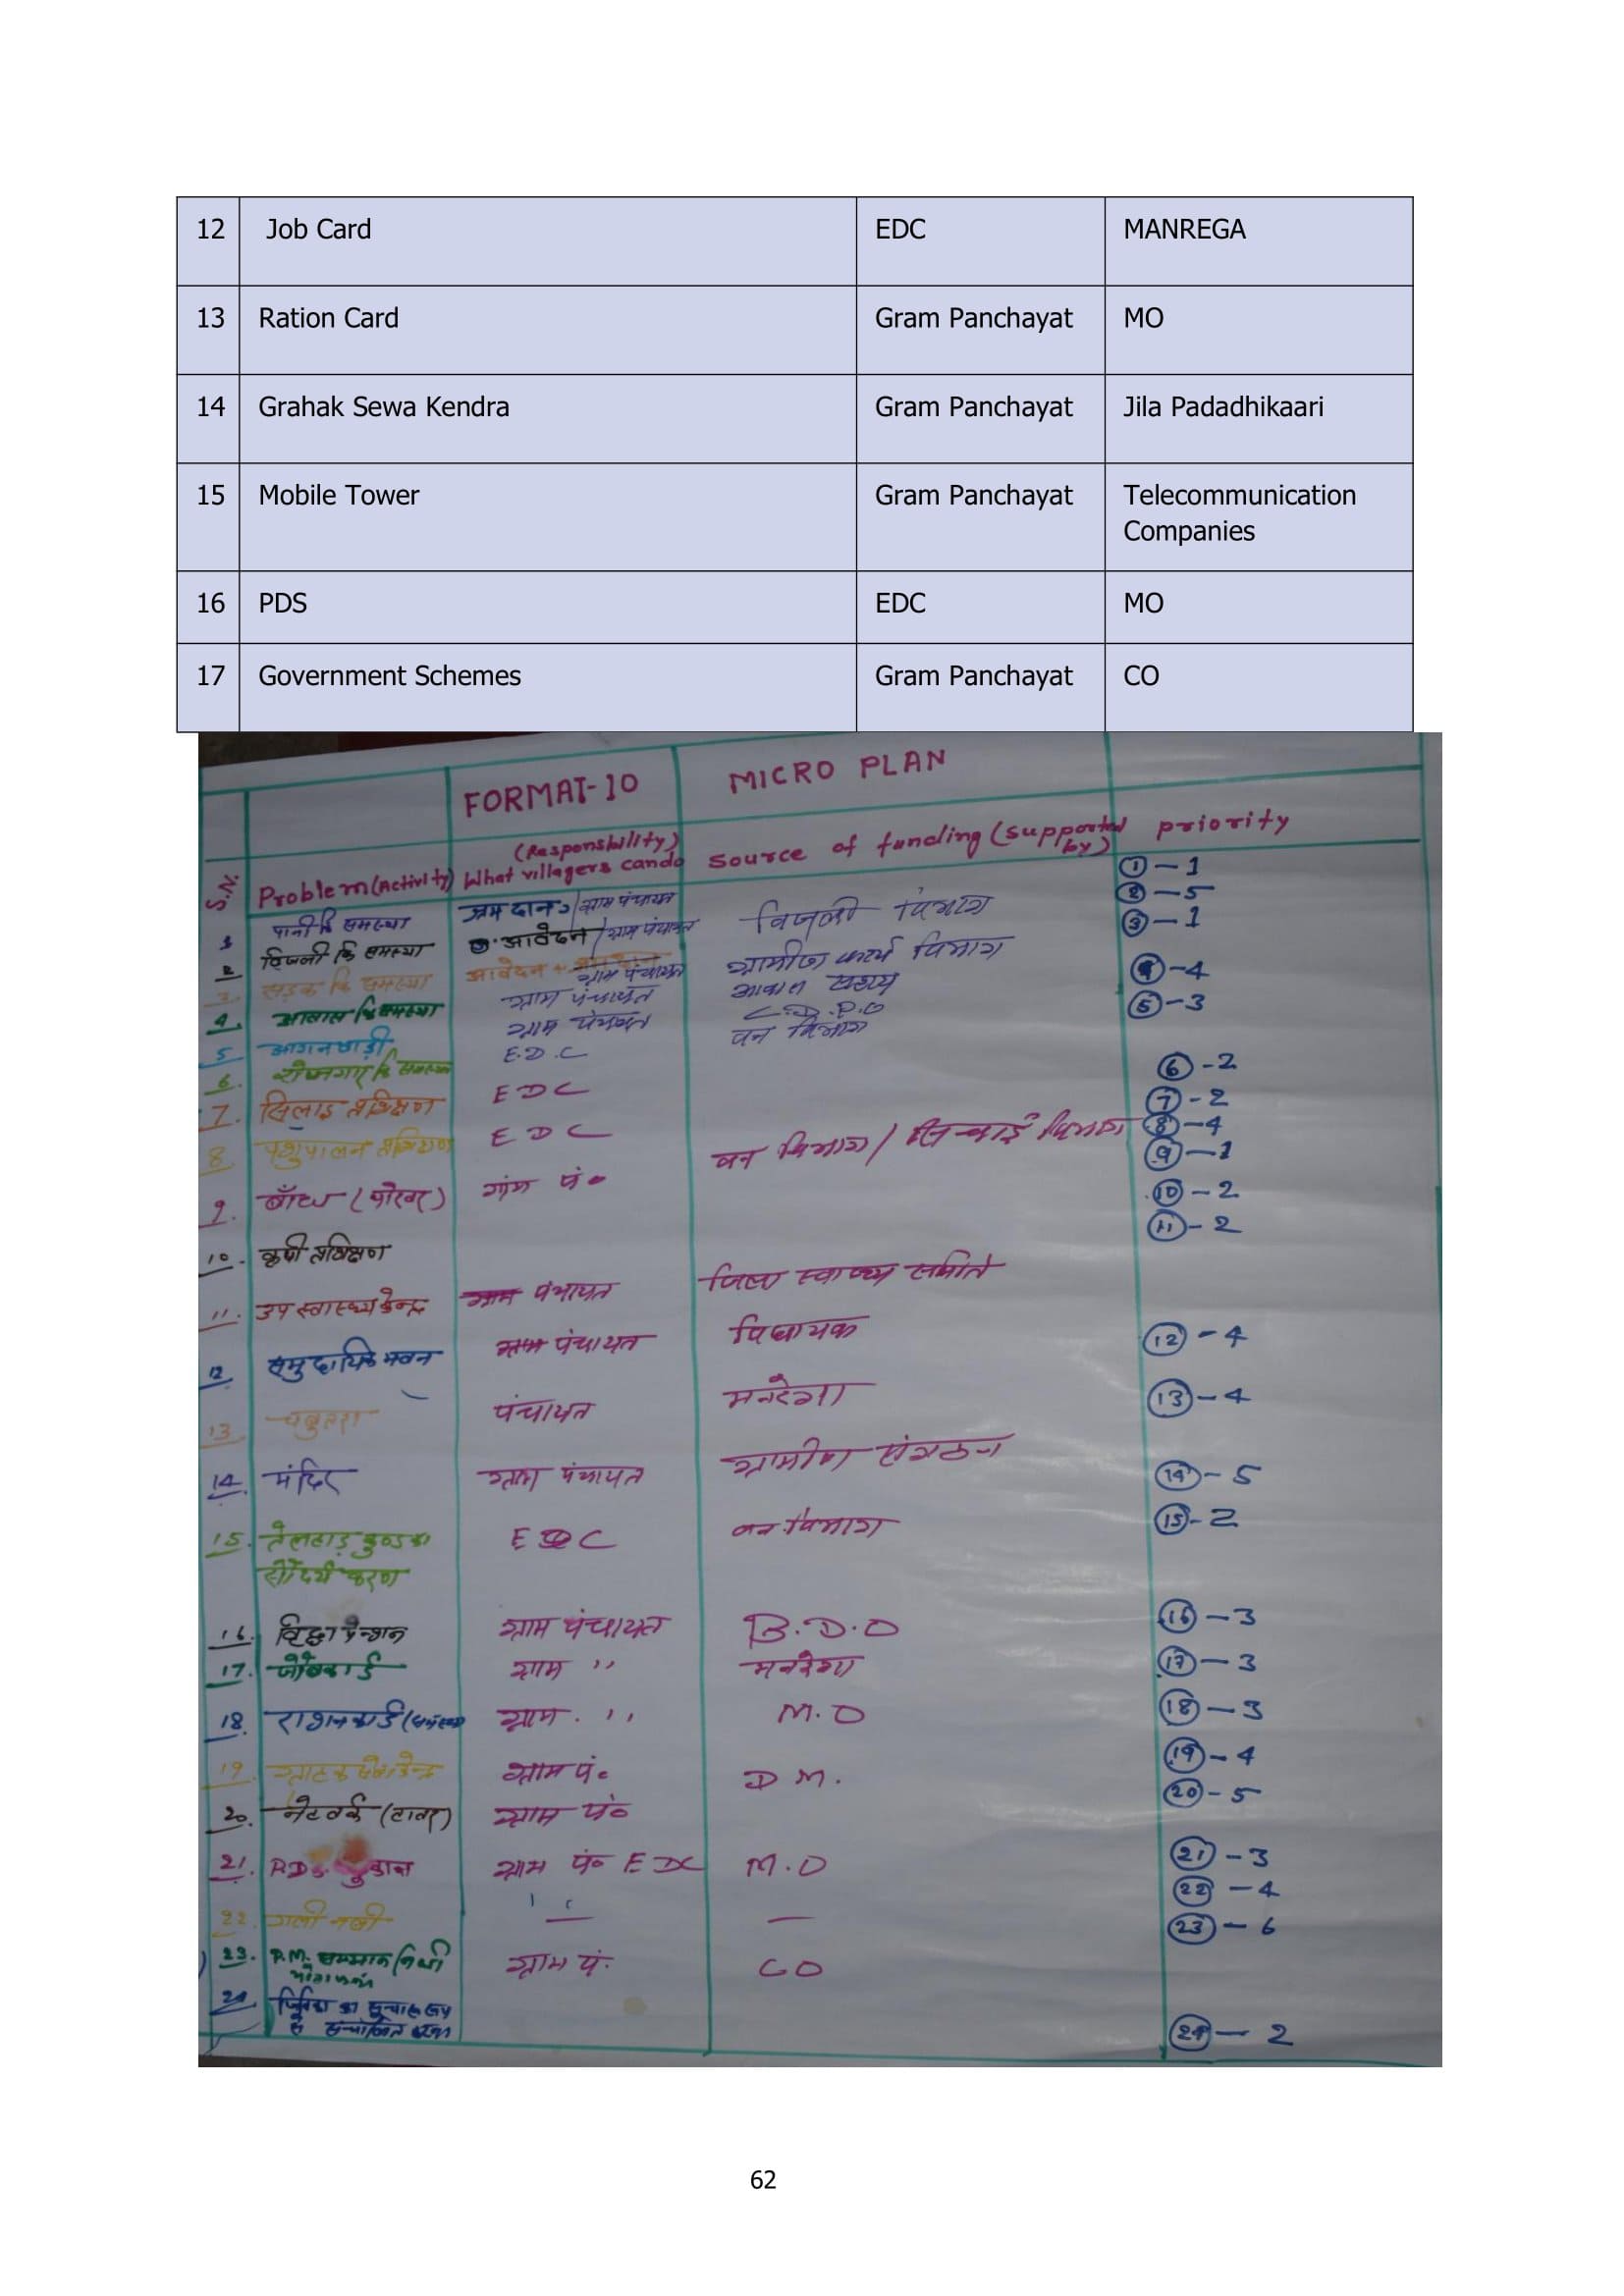 12 Job Card EDC MANREGA
13 Ration Card Gram Panchayat MO
14 Grahak Sewa Kendra Gram Panchayat Jila Padadhikaari
15 Mobile Tower Gram Panchayat Telecommunication
Companies
16 PDS EDC MO
17 Government Schemes Gram Panchayat CO
FORMAT-10 MICRO PLAN
S.N. Problem(Activity) (Responsbility) What villagers can do Source of funding (supported by) priority
1 पानी कि समस्या श्रम दान / ग्राम पंचायत ① - 1
2 बिजली कि समस्या आवेदन / ग्राम पंचायत बिजली विभाग ② - 5
3 सड़क कि समस्या आवेदन ग्राम पंचायत ग्रामीण कार्य विभाग ③ - 1
4 आवास कि समस्या ग्राम पंचायत ④ - 4
5 आगनबाड़ी ग्राम पंचायत C.D.P.O ⑤ - 3
6. रोजगार कि समस्या E.D.C वन विभाग ⑥ - 2
7. सिलाइ प्रशिक्षण EDC ⑦ - 2
8. पशुपालन प्रशिक्षण EDC ⑧ - 4
9. बाँध (पोखर) पं॰ वन विभाग / सिन्चाई विभाग ⑨ - 1
10. कृषी प्रशिक्षण ⑩ - 2
11. उप स्वास्थ्य केन्द्र ग्राम पंचायत जिला स्वास्थ्य समिति ⑪ - 2
12 समुदायिक भवन ग्राम पंचायत विधायक ⑫ - 4
13 चबुतरा पंचायत मनरेगा ⑬ - 4
14. मंदिर ग्राम पंचायत ग्रामीण संगठन ⑭ - 5
15. तेलहाड़ कुण्ड का EDC वन विभाग ⑮ - 2
सौंदर्य करण
16. पेन्शन ग्राम पंचायत B.D.O ⑯ - 3
17. जॉबकार्ड ग्राम " मनरेगा ⑰ - 3
18. राशन कार्ड ग्राम. " M.O ⑱ - 3
19. ग्राहक सेवा केन्द्र ग्राम पं॰ D M. ⑲ - 4
20. नेटवर्क (टावर) ग्राम पं॰ ⑳ - 5
21. P.D.S. दुकान ग्राम पं॰ EDC M.O ㉑ - 3
22. गली नली — — ㉒ - 4
23. P.M. सम्मान निधी ग्राम पं. CO ㉓ - 6
24 से संचालित करना ㉔ - 2
62